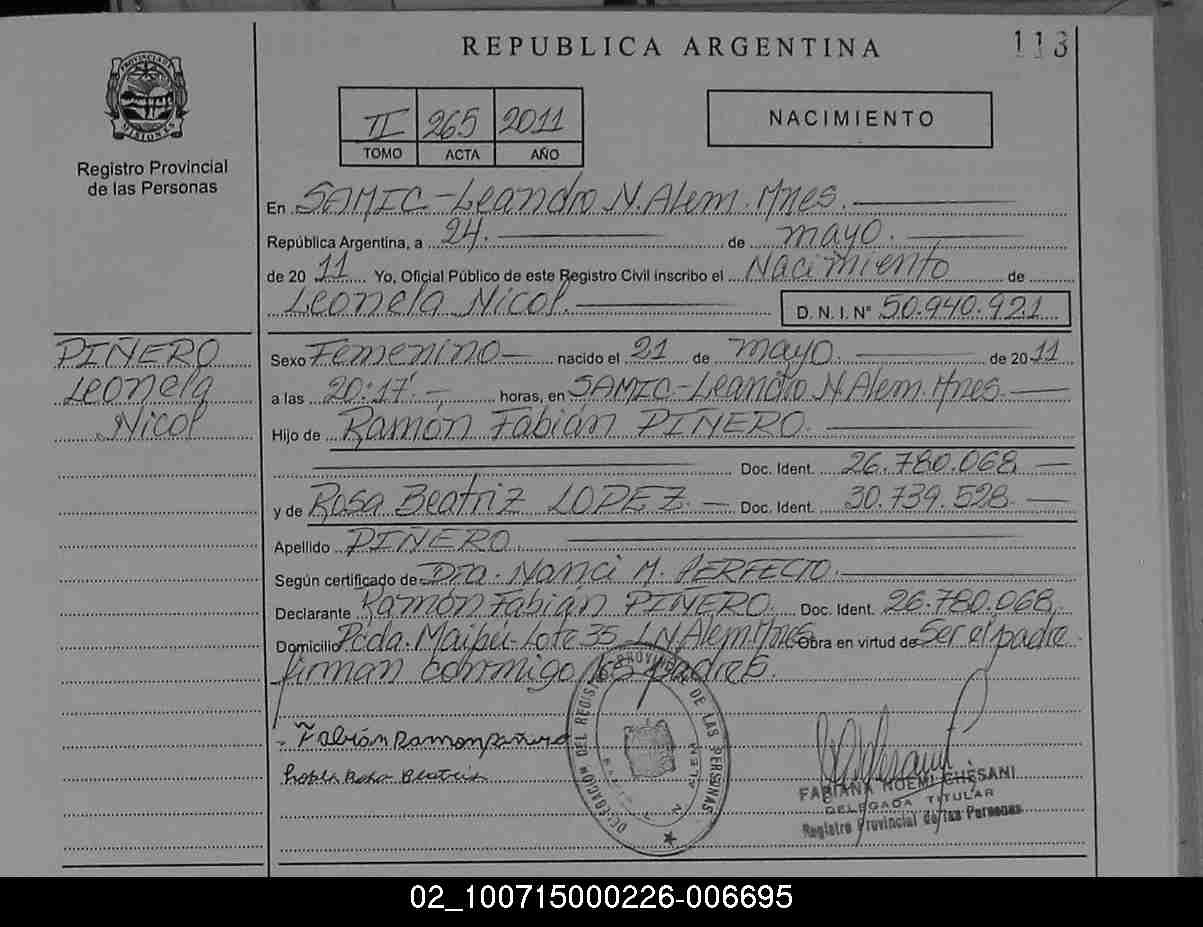 REPUBLICA ARGENTINA
113
PROVINCIA DE MISIONES
Registro Provincial
de las Personas
II 265 2011
TOMO ACTA AÑO
NACIMIENTO
En SAMIC-Leandro N. Alem. Mnes.
República Argentina, a 24. de mayo.
de 2011 Yo, Oficial Público de este Registro Civil inscribo el Nacimiento de
Leonela Nicol. D. N. I. N° 50.940.921
PIÑERO
Leonela
Nicol
Sexo Femenino nacido el 21 de mayo. de 2011
a las 20:17'. horas, en SAMIC-Leandro N. Alem. Mnes.
Hijo de Ramón Fabián PIÑERO.
Doc. Ident. 26.780.068
y de Rosa Beatriz LOPEZ. Doc. Ident. 30.739.528
Apellido PIÑERO
Según certificado de Dra. Nanci M. PERFECTO.
Declarante Ramón Fabián PIÑERO. Doc. Ident. 26.780.068
Domicilio Pcda. Maipú-Lote 35 LN Alem Mnes. Obra en virtud de Ser el padre.
firman conmigo los padres.
Fabián Ramon Piñero
Lopez Rosa Beatriz
DELEGACIÓN DEL REGISTRO PROVINCIAL DE LAS PERSONAS
N. ALEM
FABIANA NOEMI CHESANI
DELEGADA TITULAR
Registro Provincial de las Personas
02_100715000226-006695